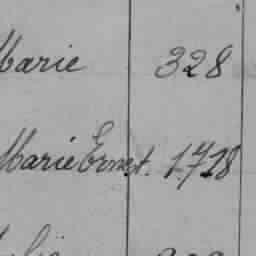 Marie 328
Marie Ernest. 1718